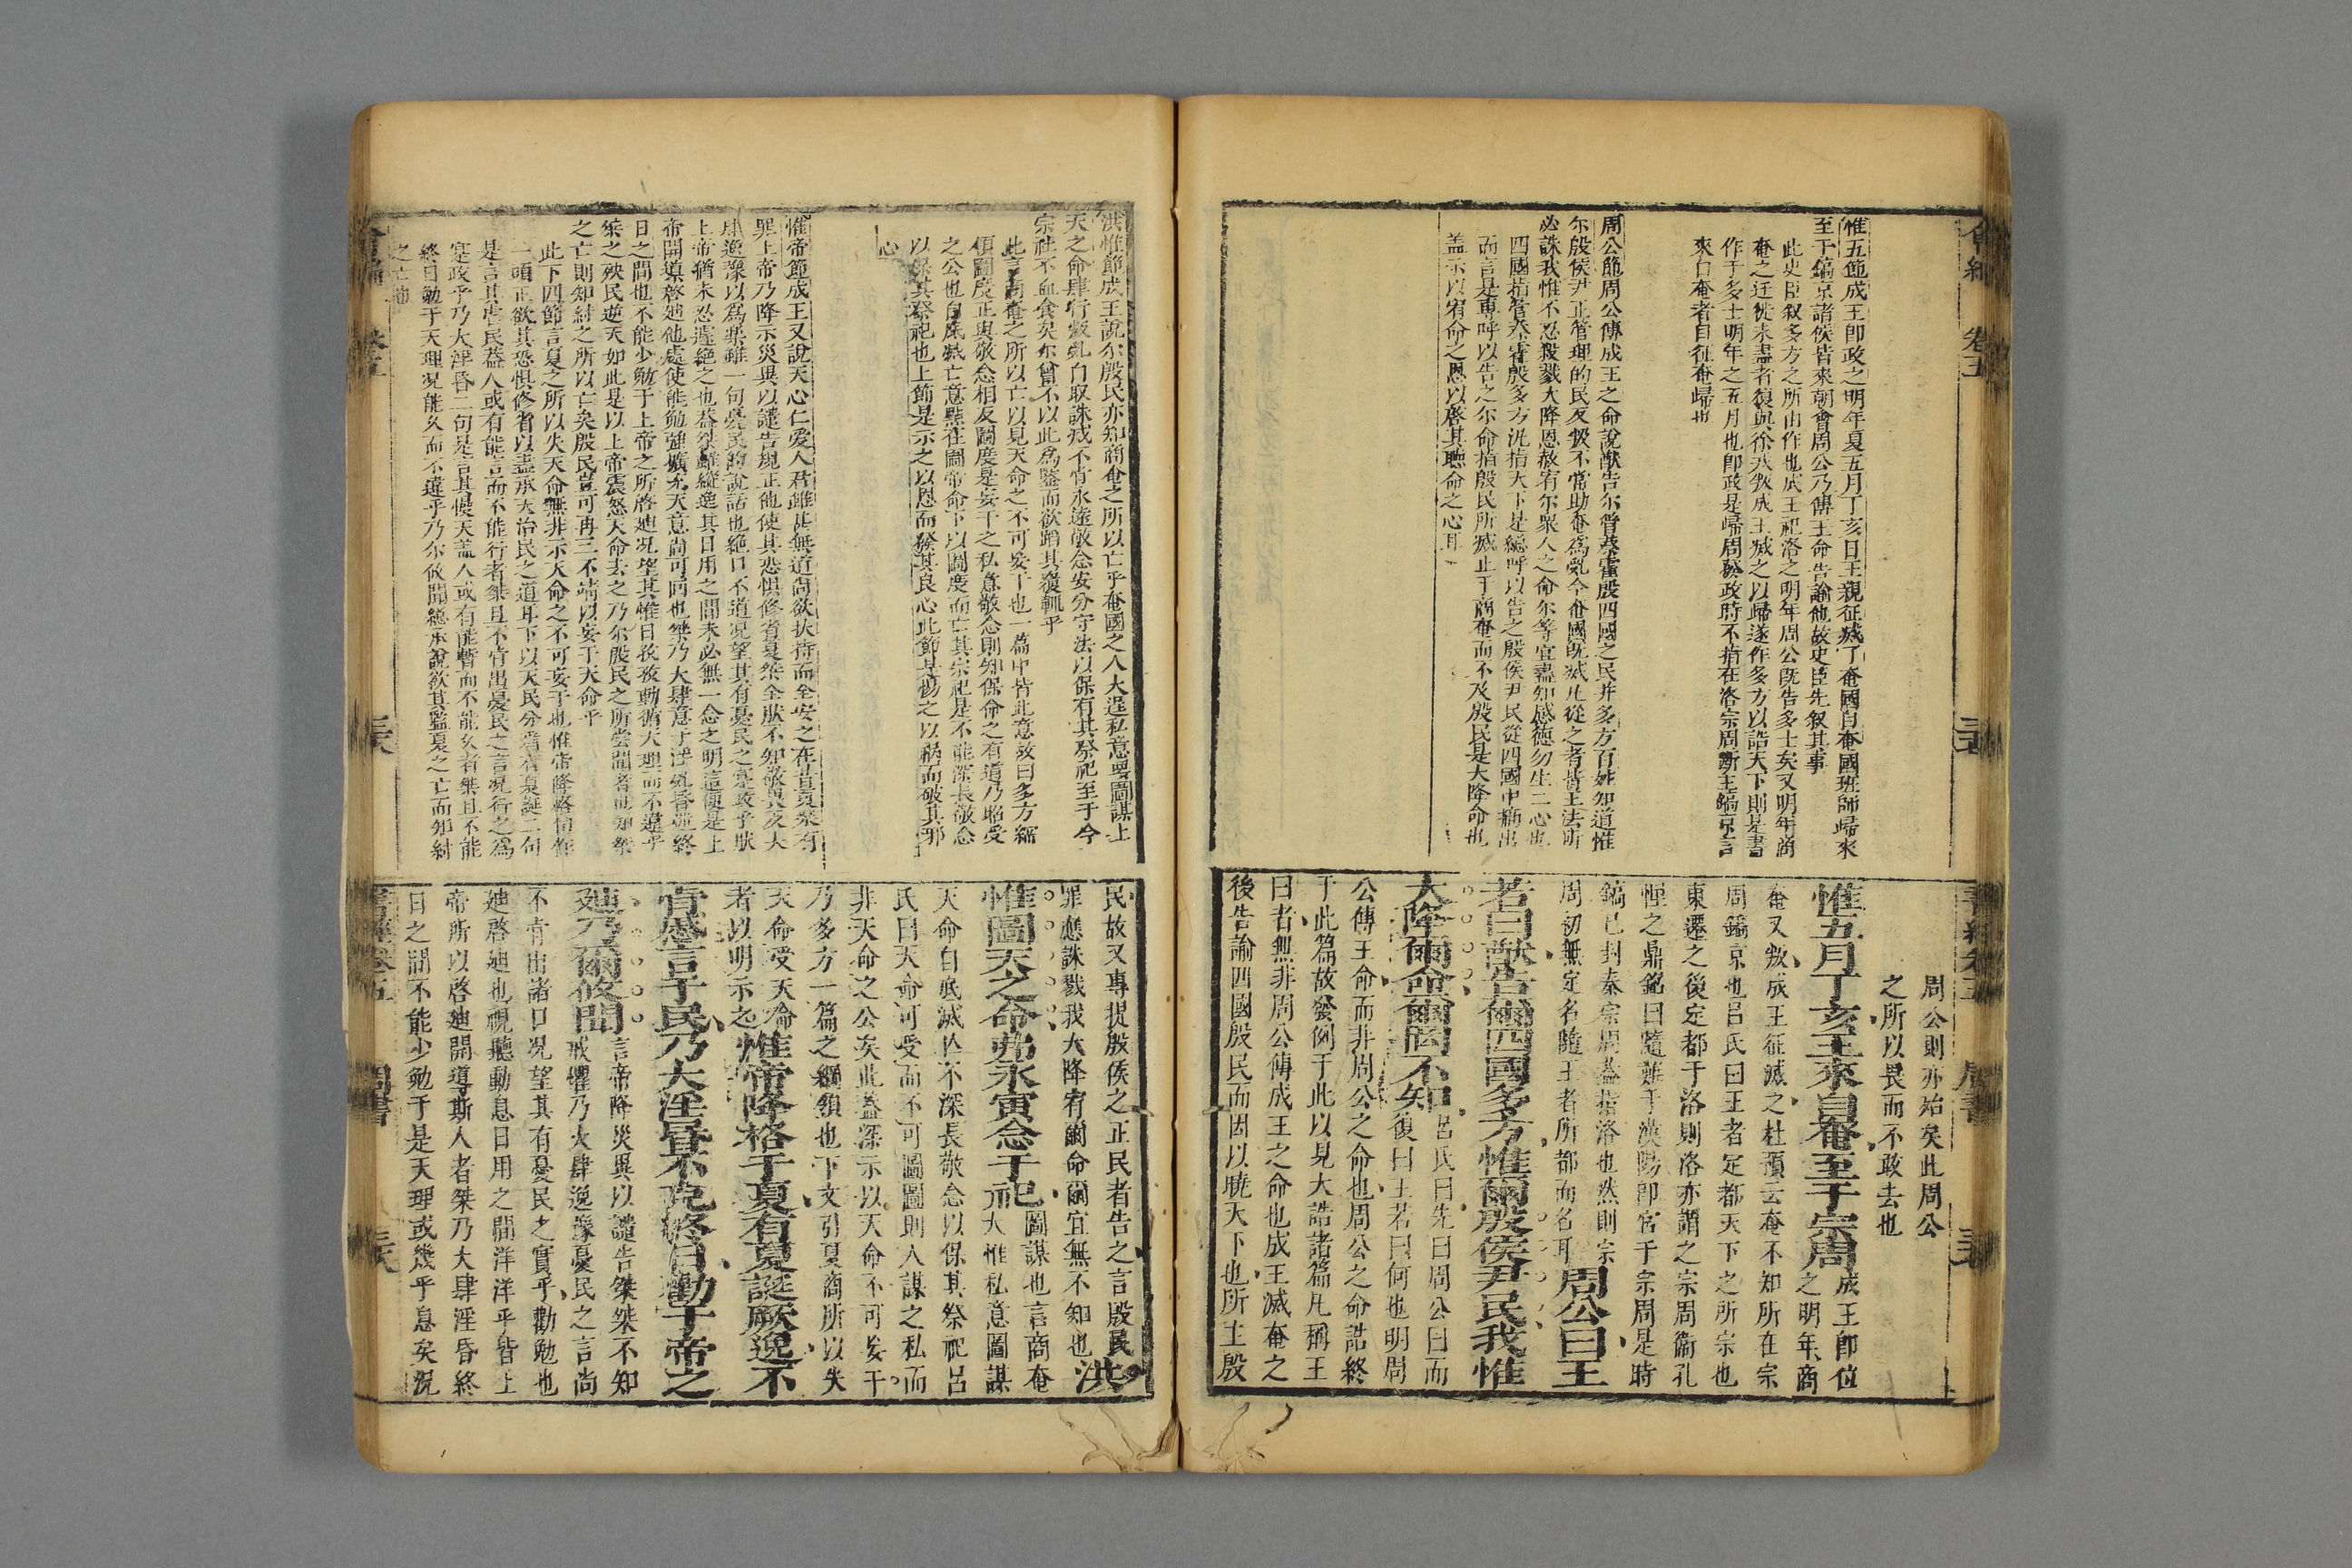 惟五節成王卽政之明年夏五月丁亥日王親征滅了奄國自奄國班師歸來
至于鎬京諸侯皆來朝會周公乃傳王命告諭他故史臣先叙其事
此史臣叙多方之所由作也成王祀洛之明年周公旣告多士矣又明年商
奄之迁徙未盡者復與徐戎叛成王滅之以歸遂作多方以誥天下則是書
作于多士明年之五月也卽政是歸周發政時不指在洛宗周斷主鎬京言
來自奄者自征奄歸也
周公節周公傳成王之命說猷告尔管蔡霍殷四國之民并多方百姓知道惟
尔殷侯尹正管理的民反叛不常助奄爲亂今奄國旣滅凡從之者皆王法所
必誅我惟不忍殺戮大降恩赦宥尔衆人之命尔等宜盡知感德勿生二心也
四國指管蔡霍殷多方汎指天下是總呼以告之殷侯尹民從四國中摘出
而言是專呼以告之尔命指殷民所滅止于商奄而不及殷民是大降命也
蓋示以宥命之恩以啓其聽命之心耳
周公則亦始矣此周公
之所以畏而不敢去也
惟五月丁亥王來自奄至于宗周成王卽位之明年商
奄又叛成王征滅之杜預云奄不知所在宗
周鎬京也呂氏曰王者定都天下之所宗也
東遷之後定都于洛則洛亦謂之宗周衛孔
悝之鼎銘曰隨難于漢陽卽宮于宗周是時
鎬已封秦宗周蓋指洛也然則宗
周初無定名隨王者所都而名耳周公曰王
若曰猷告爾四國多方惟爾殷侯尹民我惟
大降爾命爾罔不知呂氏曰先曰周公曰而復曰王若曰何也明周
公傳王命而非周公之命也周公之命誥終
于此篇故發例于此以見大誥諸篇凡稱王
曰者無非周公傳成王之命也成王滅奄之
後告諭四國殷民而因以曉天下也所主殷
洪惟節成王說尔殷民亦知商奄之所以亡乎奄國之人大逞私意要圖謀上
天之命肆行叛亂自取誅戒不肯永遠敬念安分守法以保有其祭祀至于今
宗社不血食矣尔曾不以此爲鑒而欲蹈其覆輒乎
此言商奄之所以亡以見天命之不可妄于也一篇中皆此意故曰多方綱
領圖度正與敬念相反圖度是妄干之私意敬念則知保命之有道乃昭受
之公也自底滅亡意點在圖帝命下以圖度而亡其宗祀是不能深長敬念
以保其祭祀也上節是示之以恩而發其良心此節是惕之以禍而破其邪
心
惟帝節成王又說天心仁愛人君雖甚無道尚欲扶持而全安之在昔夏桀有
罪上帝乃降示災異以譴告規正他使其恐惧修省夏桀全然不知敬畏反大
肆逸豫以爲樂雖一句憂民的說話也絶口不道况望其有憂民之寔政乎狀
上帝猶未忍遽絶之也蓋桀雖縱逸其日用之間未必無一念之明這便是上
帝開導啓廸他處使能勉強擴充天意尚可囘也桀乃大肆意于淫亂昏迷終
日之間也不能少勉于上帝之所啓廸况望其惟日孜孜動循天理而不違乎
桀之殃民逆天如此是以上帝震怒天命去之乃尔殷民之所甞聞者也知桀
之亡則知紂之所以亡矣殷民豈可再三不靖以妄于天命乎
此下四節言夏之所以失天命無非示天命之不可妄于也惟帝降格句作
一頭正欲其恐惧修省以盡承天治民之道耳下以天民分看有夏誕二句
是言其虐民蓋人或有能言而不能行者桀且不肯出憂民之言况行之爲
寔政乎乃大淫昏二句是言其慢天蓋人或有能暫而不能久者桀且不能
終日勉于天理况能久而不違乎乃尔攸聞總承說欲其鑒夏之亡而知紂
之亡也
民故又專提殷侯之正民者告之言殷民
罪應誅戮我大降宥爾命爾宜無不知也洪
惟圖天之命弗永寅念于祀圖謀也言商奄大惟私意圖謀
天命自底滅亡不深長敬念以保其祭祀呂
氏曰天命可受而不可圖圖則人謀之私而
非天命之公矣此蓋深示以天命不可妄干
乃多方一篇之綱領也下文引夏商所以失
天命受天命者以明示之惟帝降格于夏有夏誕厥逸不
肯慼言于民乃大淫昬不克終日勸于帝之
廸乃爾攸聞言帝降災異以譴告桀桀不知戒懼乃大肆逸豫憂民之言尚
不肯出諸口况望其有憂民之實乎勸勉也
廸啓廸也視聽動息日用之間洋洋乎皆上
帝所以啓廸開導斯人者桀乃大肆淫昏終
日之間不能少勉于是天理或幾乎息矣况